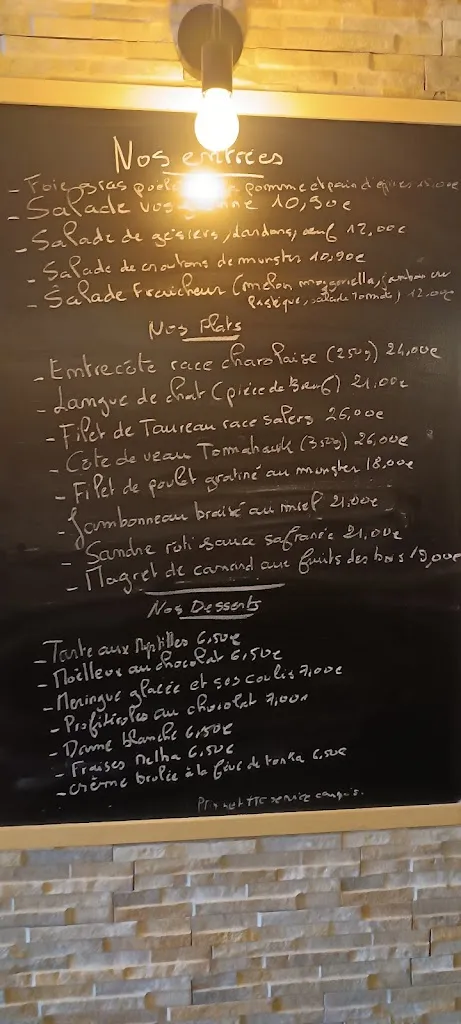 Nos entrées
- Foie gras poêlé pomme et pain d'épices
- Salade vosgienne 10,90€
- Salade de gésiers, lardons, œuf 12,00€
- Salade de croutons de munster 10,90€
- Salade Fraicheur (melon mozzarella, jambon cru
Pastèque, salade Tomate) 12,00€
Nos Plats
- Entrecôte race charolaise (250g) 24,00€
- Langue de chat (pièce de Bœuf) 21,00€
- Filet de Taureau race salers 26,00€
- Côte de veau Tomahawk (350g) 26,00€
- Filet de poulet gratiné au munster 18,00€
- Jambonneau braisé au miel 21,00€
- Sandre rôti sauce safranée 21,00€
- Magret de canard aux fruits des bois 19,00€
Nos Desserts
- Tarte aux Myrtilles 6,50€
- Moëlleux au chocolat 6,50€
- Meringue glacée et ses coulis 7,00€
- Profiteroles au chocolat 7,00€
- Dame blanche 6,50€
- Fraises Melba 6,50€
- crème brulée à la fève de tonka 6,50€
Prix net TTC service compris.